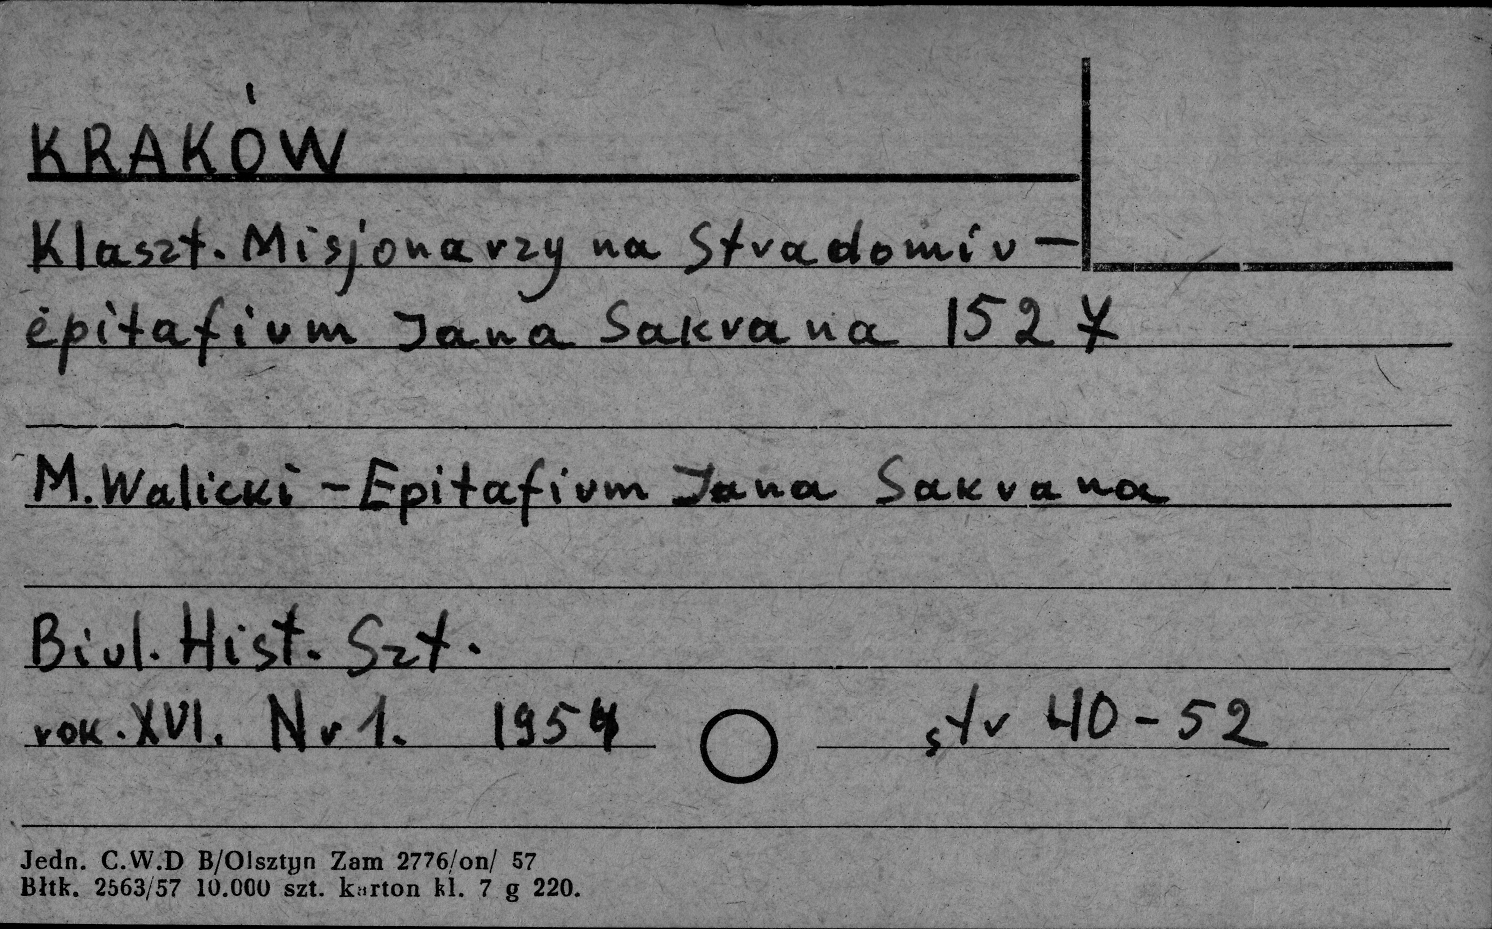 KRAKÓW
Klaszt. Misjonarzy na Stradomiu –
epitafium Jana Sakrana 1527
M. Walicki – Epitafium Jana Sakrana
Biul. Hist. Szt.
rok. XVI. Nr 1. 1954 str 40 – 52
Jedn. C.W.D B/Olsztyn Zam 2776/on/ 57
Błtk. 2563/57 10.000 szt. karton kl. 7 g 220.